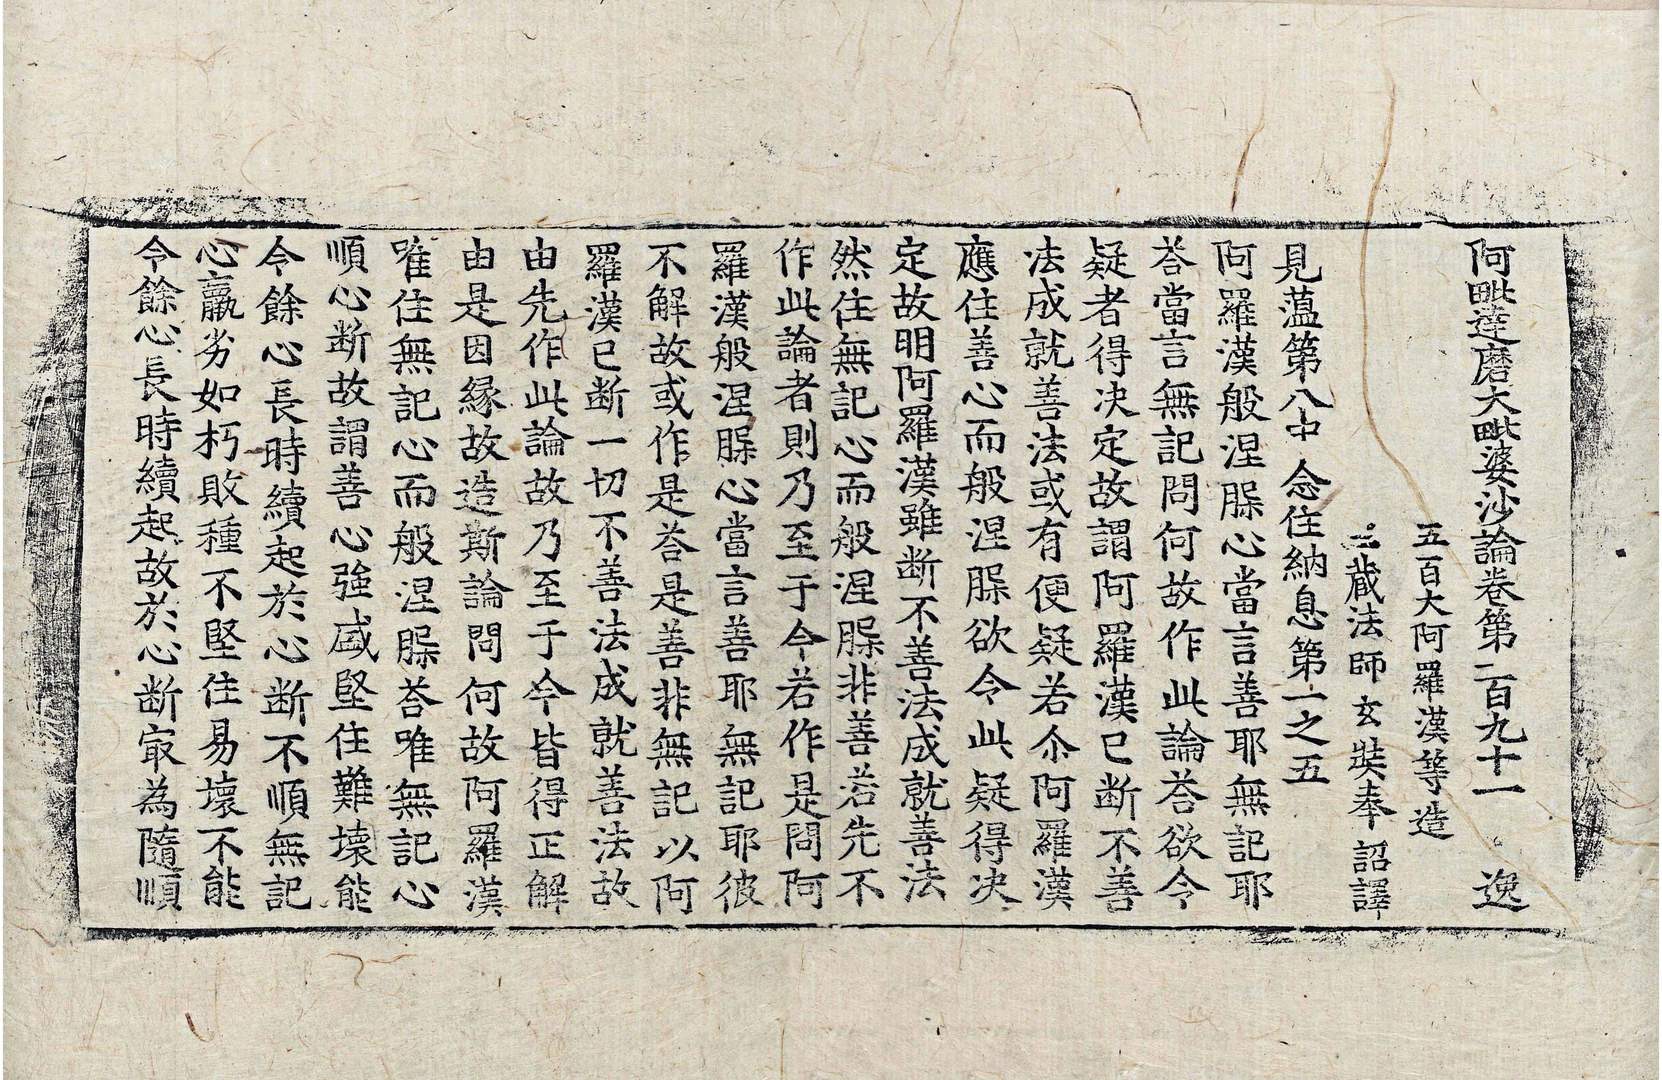 阿毗達磨大毗婆沙論卷第一百九十一 逸
五百大阿羅漢等造
三藏法師玄奘奉 詔譯
見蘊第八中念住納息第一之五
阿羅漢般涅膜心當言善耶無記耶
荅當言無記問何故作此論荅欲令
疑者得決定故謂阿羅漢已断不善
法成就善法或有便疑若尒阿羅漢
應住善心而般涅膜欲令此疑得決
定故明阿羅漢雖断不善法成就善法
然住無記心而般涅膜非善若先不
作此論者則乃至于今若作是問阿
羅漢般涅膜心當言善耶無記耶彼
不解故或作是荅是善非無記以阿
羅漢已断一切不善法成就善法故
由先作此論故乃至于今皆得正解
由是因縁故造斯論問何故阿羅漢
唯住無記心而般涅膜荅唯無記心
順心断故謂善心強盛堅住難壞能
令餘心長時續起於心断不順無記
心羸劣如朽敗種不堅住易壞不能
令餘心長時續起故於心断㝡為隨順